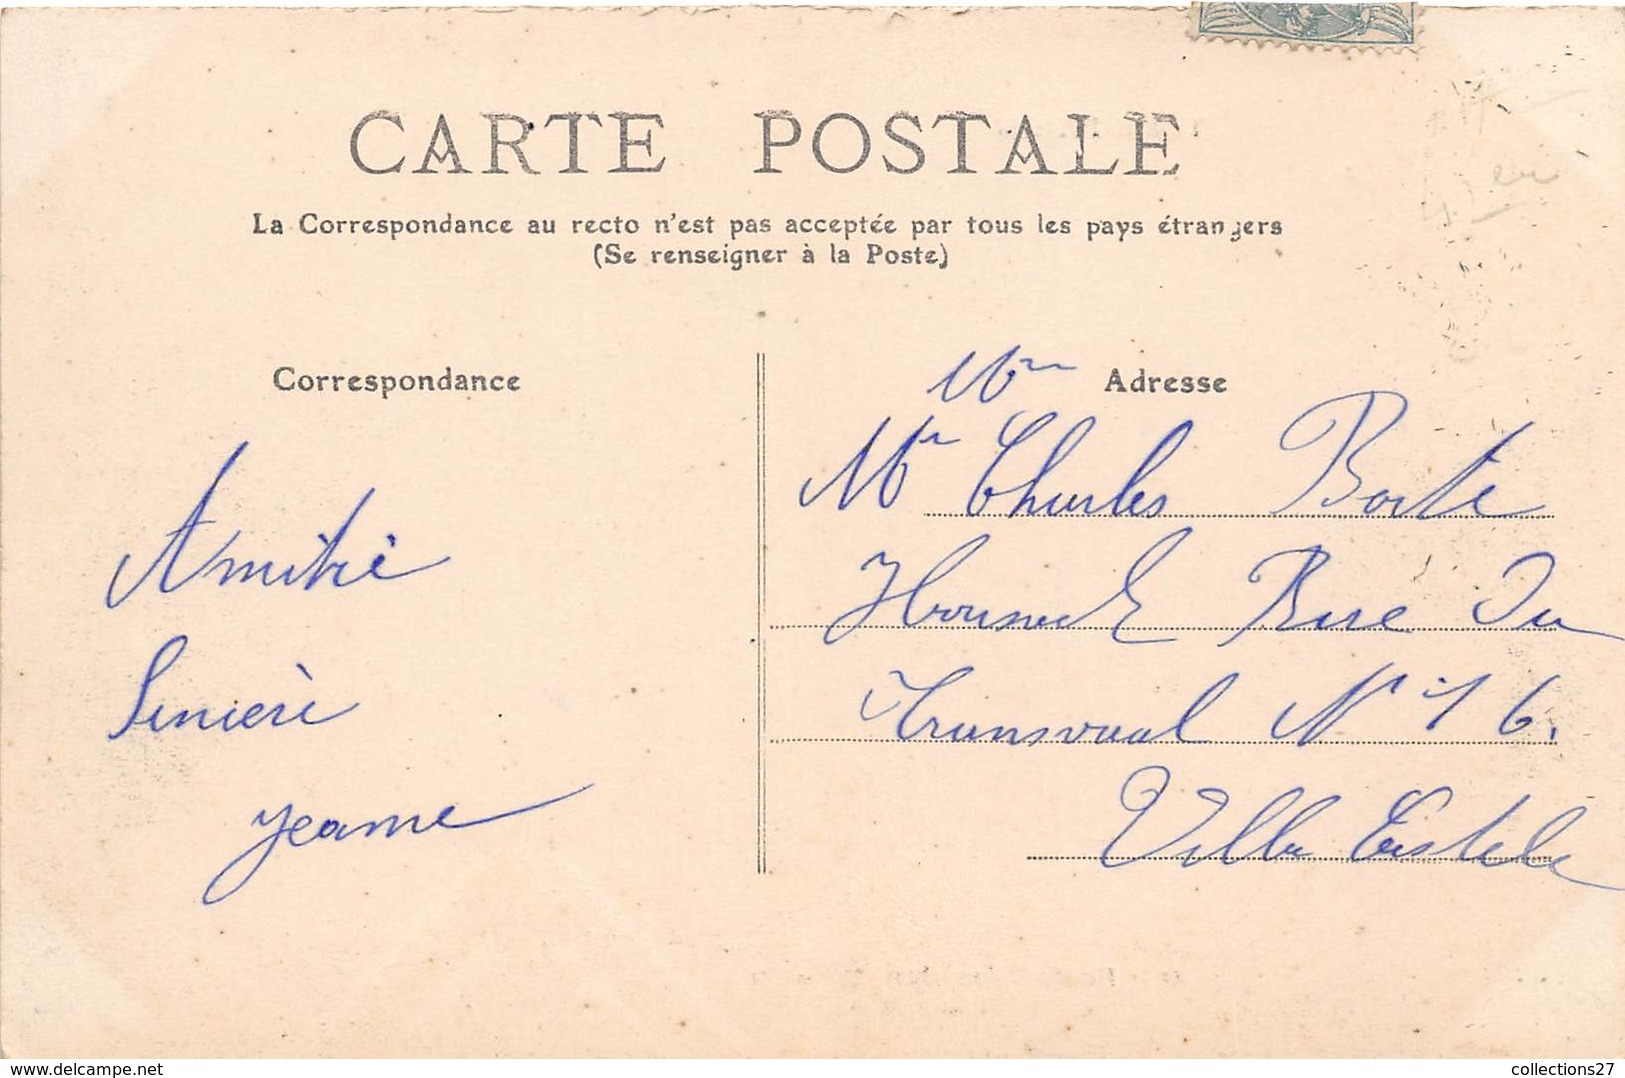 CARTE POSTALE
La Correspondance au recto n'est pas acceptée par tous les pays étrangers
(Se renseigner à la Poste)
Correspondance
Adresse
Mr Charles
Rue Du
Transvaal N° 16.
Villa
Amitié
Sincère
Jeanne
collections27